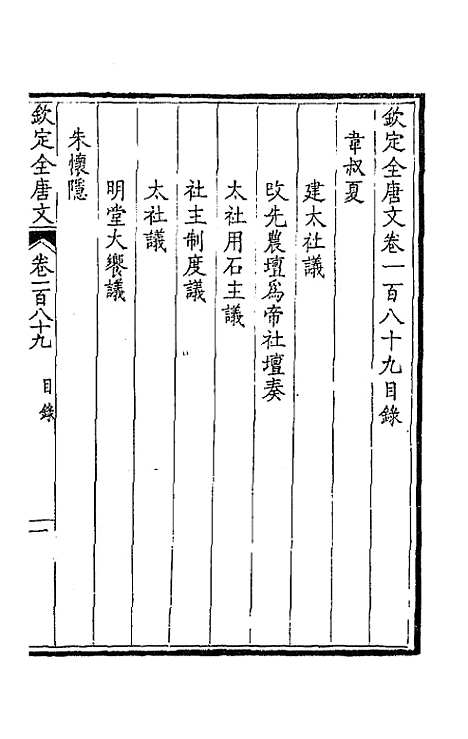 欽定全唐文卷一百八十九目錄
韋叔夏
建太社議
改先農壇爲帝社壇奏
太社用石主議
社主制度議
太社議
明堂大饗議
朱懷隱
欽定全唐文 卷一百八十九 目錄 一